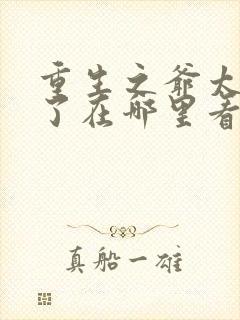 重生之爺太
了在哪里看
真船一雄